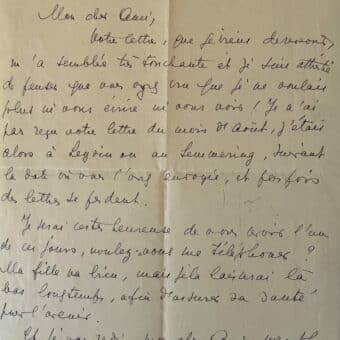 Mon cher Ami,
Votre lettre, que je viens de recevoir,
m'a semblée très touchante et je suis attristée
de penser que vous ayez cru que je ne voulais
plus ni vous écrire ni vous voir ! Je n'ai
pas reçu votre lettre du mois d'août, j'étais
alors à Leysin ou au Semmering, suivant
la date où vous l'avez envoyée, et parfois
des lettres se perdent.
Je serai très heureuse de vous avoir l'un
de ces jours, voulez-vous me téléphoner ?
Ma fille va bien, mais je la laisserai là
bas longtemps, afin d'assurer sa santé
pour l'avenir.
Et je vous redis